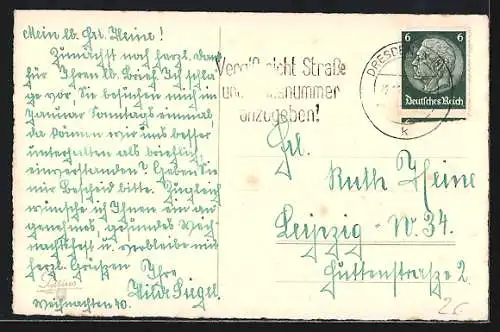 Mein lb. Frl. Heine!
Zunächst noch herzl. Dank
für Ihren lb. Brief. Ich schla-
ge vor, Sie besuchen mich im
Januar Sonntags einmal
da können wir uns besser
unterhalten als brieflich,
einverstanden? Geben Sie
mir Bescheid bitte. Zugleich
wünsche ich Ihnen ein an-
genehmes, gesundes Weih-
nachtsfest u. verbleibe mit
herzl. Grüßen Ihre
Hilde Siegel
Weihnachten 40.
Vergiß nicht Straße
und Hausnummer
anzugeben!
DRESDEN
k
6 6
Deutsches Reich
Frl.
Ruth Heine
Leipzig-W. 34.
Huttenstrasse 2.